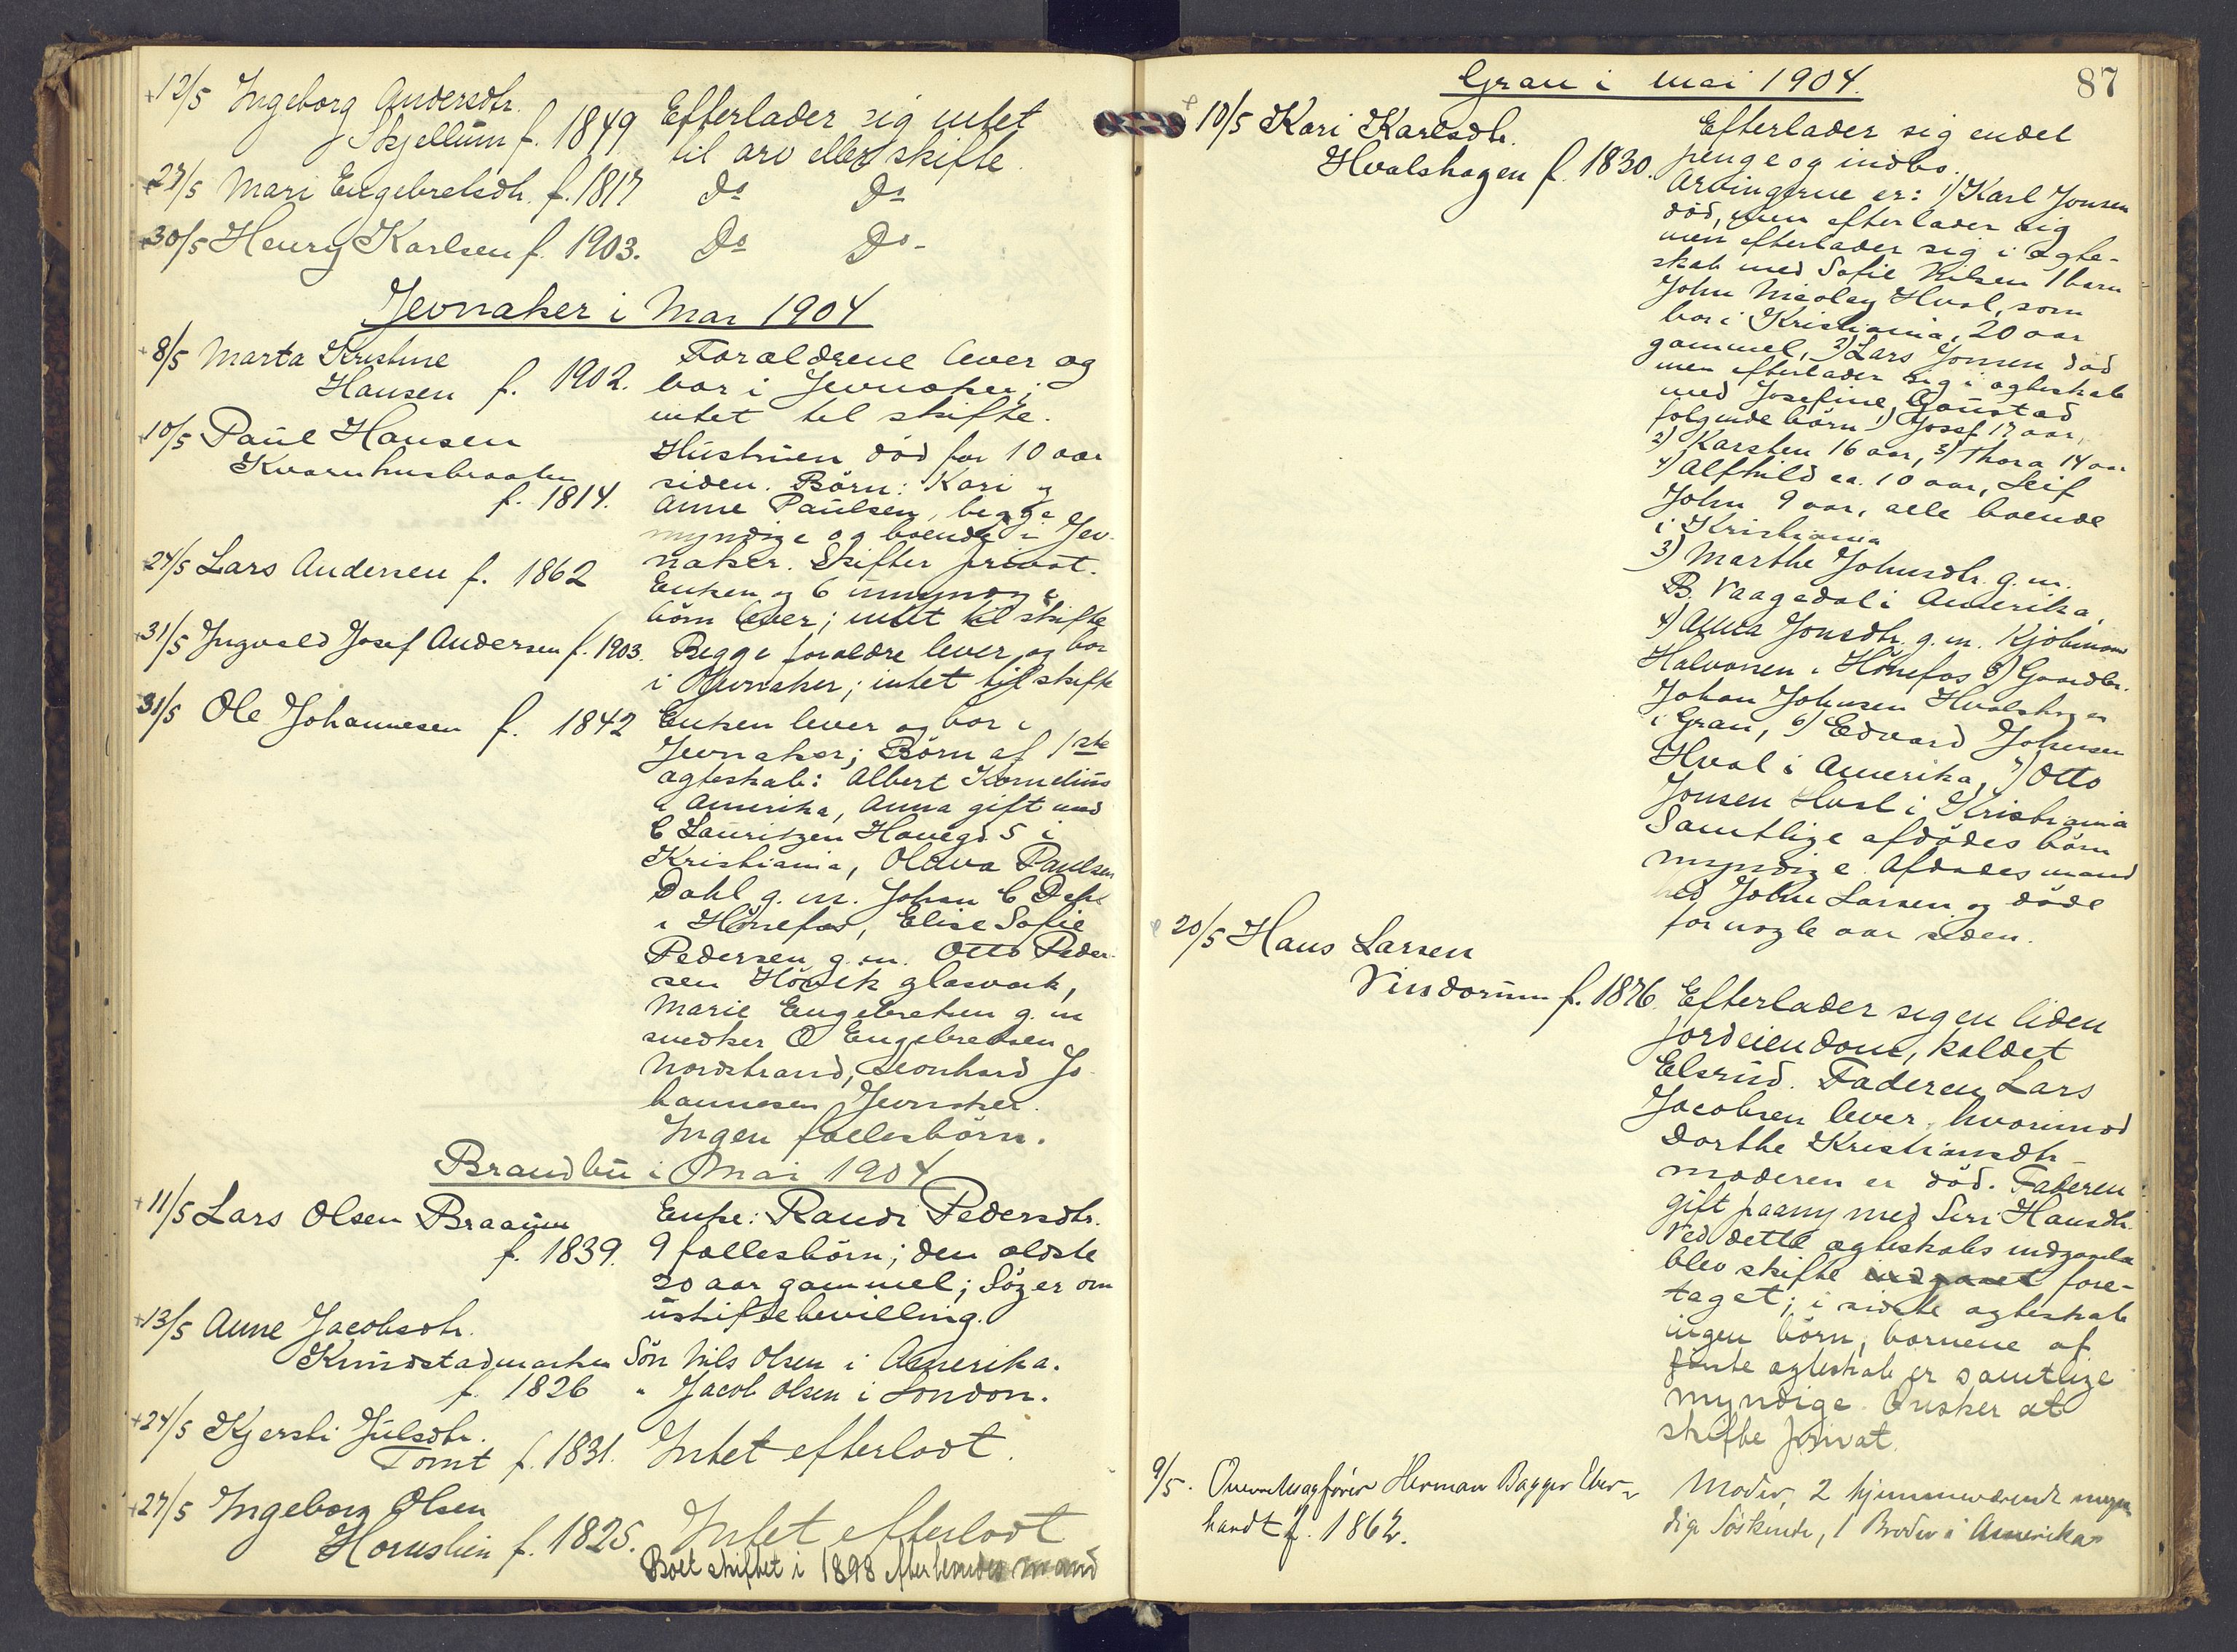 12/5 Ingeborg Andersdtr.
Skjellum f. 1849
Efterlader sig intet
til arv eller skifte.
27/5 Mari Engebretsdtr. f. 1817 Do Do
30/5 Henry Karlsen f. 1903. Do Do
Jevnaker i Mai 1904
8/5 Marta Kristine
Hansen f. 1902.
Forældrene lever og
bor i Jevnaker;
intet til skifte.
10/5 Paul Hansen
Kvarnhusbraaten
f. 1814.
Hustruen död for 10 aar
siden. Börn: Kari og
Anne Paulsen, begge
myndige og boende i Jev-
naker. Skifter privat.
24/5 Lars Andersen f. 1862
Enken og 6 umyndige
börn lever; intet til skifte
31/5 Ingvald Josef Andersen f. 1903.
Begge forældre lever og bor
i Jevnaker; intet til skifte
31/5 Ole Johannesen f. 1842
Enken lever og bor i
Jevnaker; Börn af 1ste
ægteskab: Albert Kornelius
i Amerika, Anna gift med
C Lauritzen Havegd 5 i
Kristiania, Olava Paulsen
Dahl g. m. Johan C Dahl
i Hönefos, Elise Sofie
Pedersen g. m. Otto Peder-
sen Hövik glasværk,
Marie Engebretsen g. m
snedker O Engebretsen
Nordstrand, Leonhard Jo-
hannesen Jevnaker.
Ingen fællesbörn.
Brandbu i Mai 1904
11/5 Lars Olsen Braaum
f. 1839.
Enke: Randi Pedersdtr.
9 fællesbörn; den ældste
20 aar gammel; Söger om
uskiftebevilling.
13/5 Anne Jacobsdtr.
Knudstadmarken
f. 1826
Sön Nils Olsen i Amerika.
" Jacob Olsen i London.
24/5 Kjersti Julsdtr.
Tomt f. 1831.
Intet efterladt.
27/5 Ingeborg Olsen
Hornslien f. 1825.
Intet efterladt
Boet skiftet i 1898 efter hendes mand
87
Gran i mai 1904.
10/5 Kari Karlsdtr.
Hvalshagen f. 1830.
Efterlader sig endel
penge og indbo.
Arvingerne er: 1) Karl Jonsen
död, men efterlader sig
men efterlader sig i ægte-
skab med Sofie Nilsen 1 barn
John Nicolay Hval, som
bor i Kristiania, 20 aar
gammel, 2) Lars Jonsen död
men efterlader sig i ægteskab
med Josefine Gaustad
følgende börn 1) Josef 17 aar,
2) Karsten 16 aar, 3) Thora 14 aar
4) Alfhild ca. 10 aar, Leif
John 9 aar, alle boende
i Kristiania
3) Marthe Johnsdtr. g. m.
B. Vaagedal i Amerika,
4) Anna Jonsdtr. g. m. Kjöbmand
Halvorsen i Hönefos 5) Gaardbr.
Johan Johnsen Hvalshagen
i Gran, 6) Edvard Johnsen
Hval i Amerika, 7) Otto
Jonsen Hval i Kristiania
Samtlige afdödes börn
myndige. Afdödes mand
hed John Larsen og döde
for nogle aar siden.
20/5 Hans Larsen
Vindorum f. 1876.
Efterlader sig en liden
jordeiendom, kaldet
Elsrud. Faderen Lars
Jacobsen lever, hvorimod
Dorthe Kristiansdtr
moderen er död. Faderen
gift paany med Siri Hansdtr.
Ved dette ægteskabs indgaaelse
blev skifte fore-
taget; i sidste ægteskab
ingen börn, barnene af
förste ægteskab er samtlige
myndige. Önsker at
skifte privat.
9/5. Overretssagförer Herman Bagger Eber-
hardt f. 1862.
Moder, 2 hjemmeværende myn-
dige Söskende, 1 Broder i Amerika